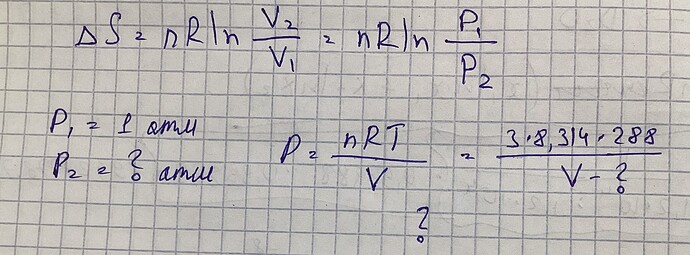 ΔS = nR ln V₂/V₁ = nR ln P₁/P₂
P₁ = 1 атм
P₂ = ? атм
P = nRT/V = 3·8,314·288/V - ?
?